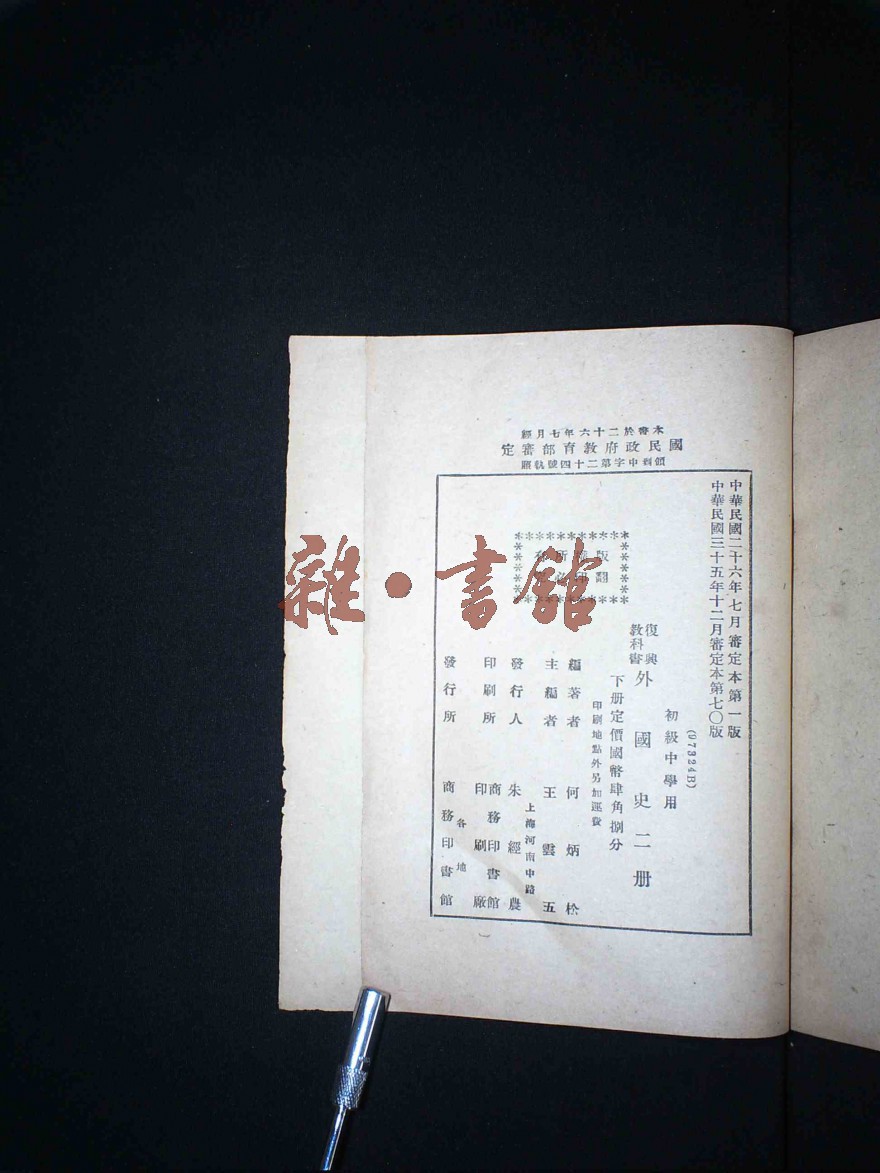 本書於二十六年七月經
國民政府教育部審定
領到中字第二十四號執照
中華民國二十六年七月審定本第一版
中華民國三十五年十二月審定本第七〇版
(97324B)
初級中學用
復興
教科書
外國史二册
下册定價國幣肆角捌分
印刷地點外另加運費
版所
翻印必
編著者 何炳松
主編者 王雲五
上海河南中路
發行人 朱經農
印刷所 商務印書館
印刷廠
發行所 各地
商務印書館
雜·書館